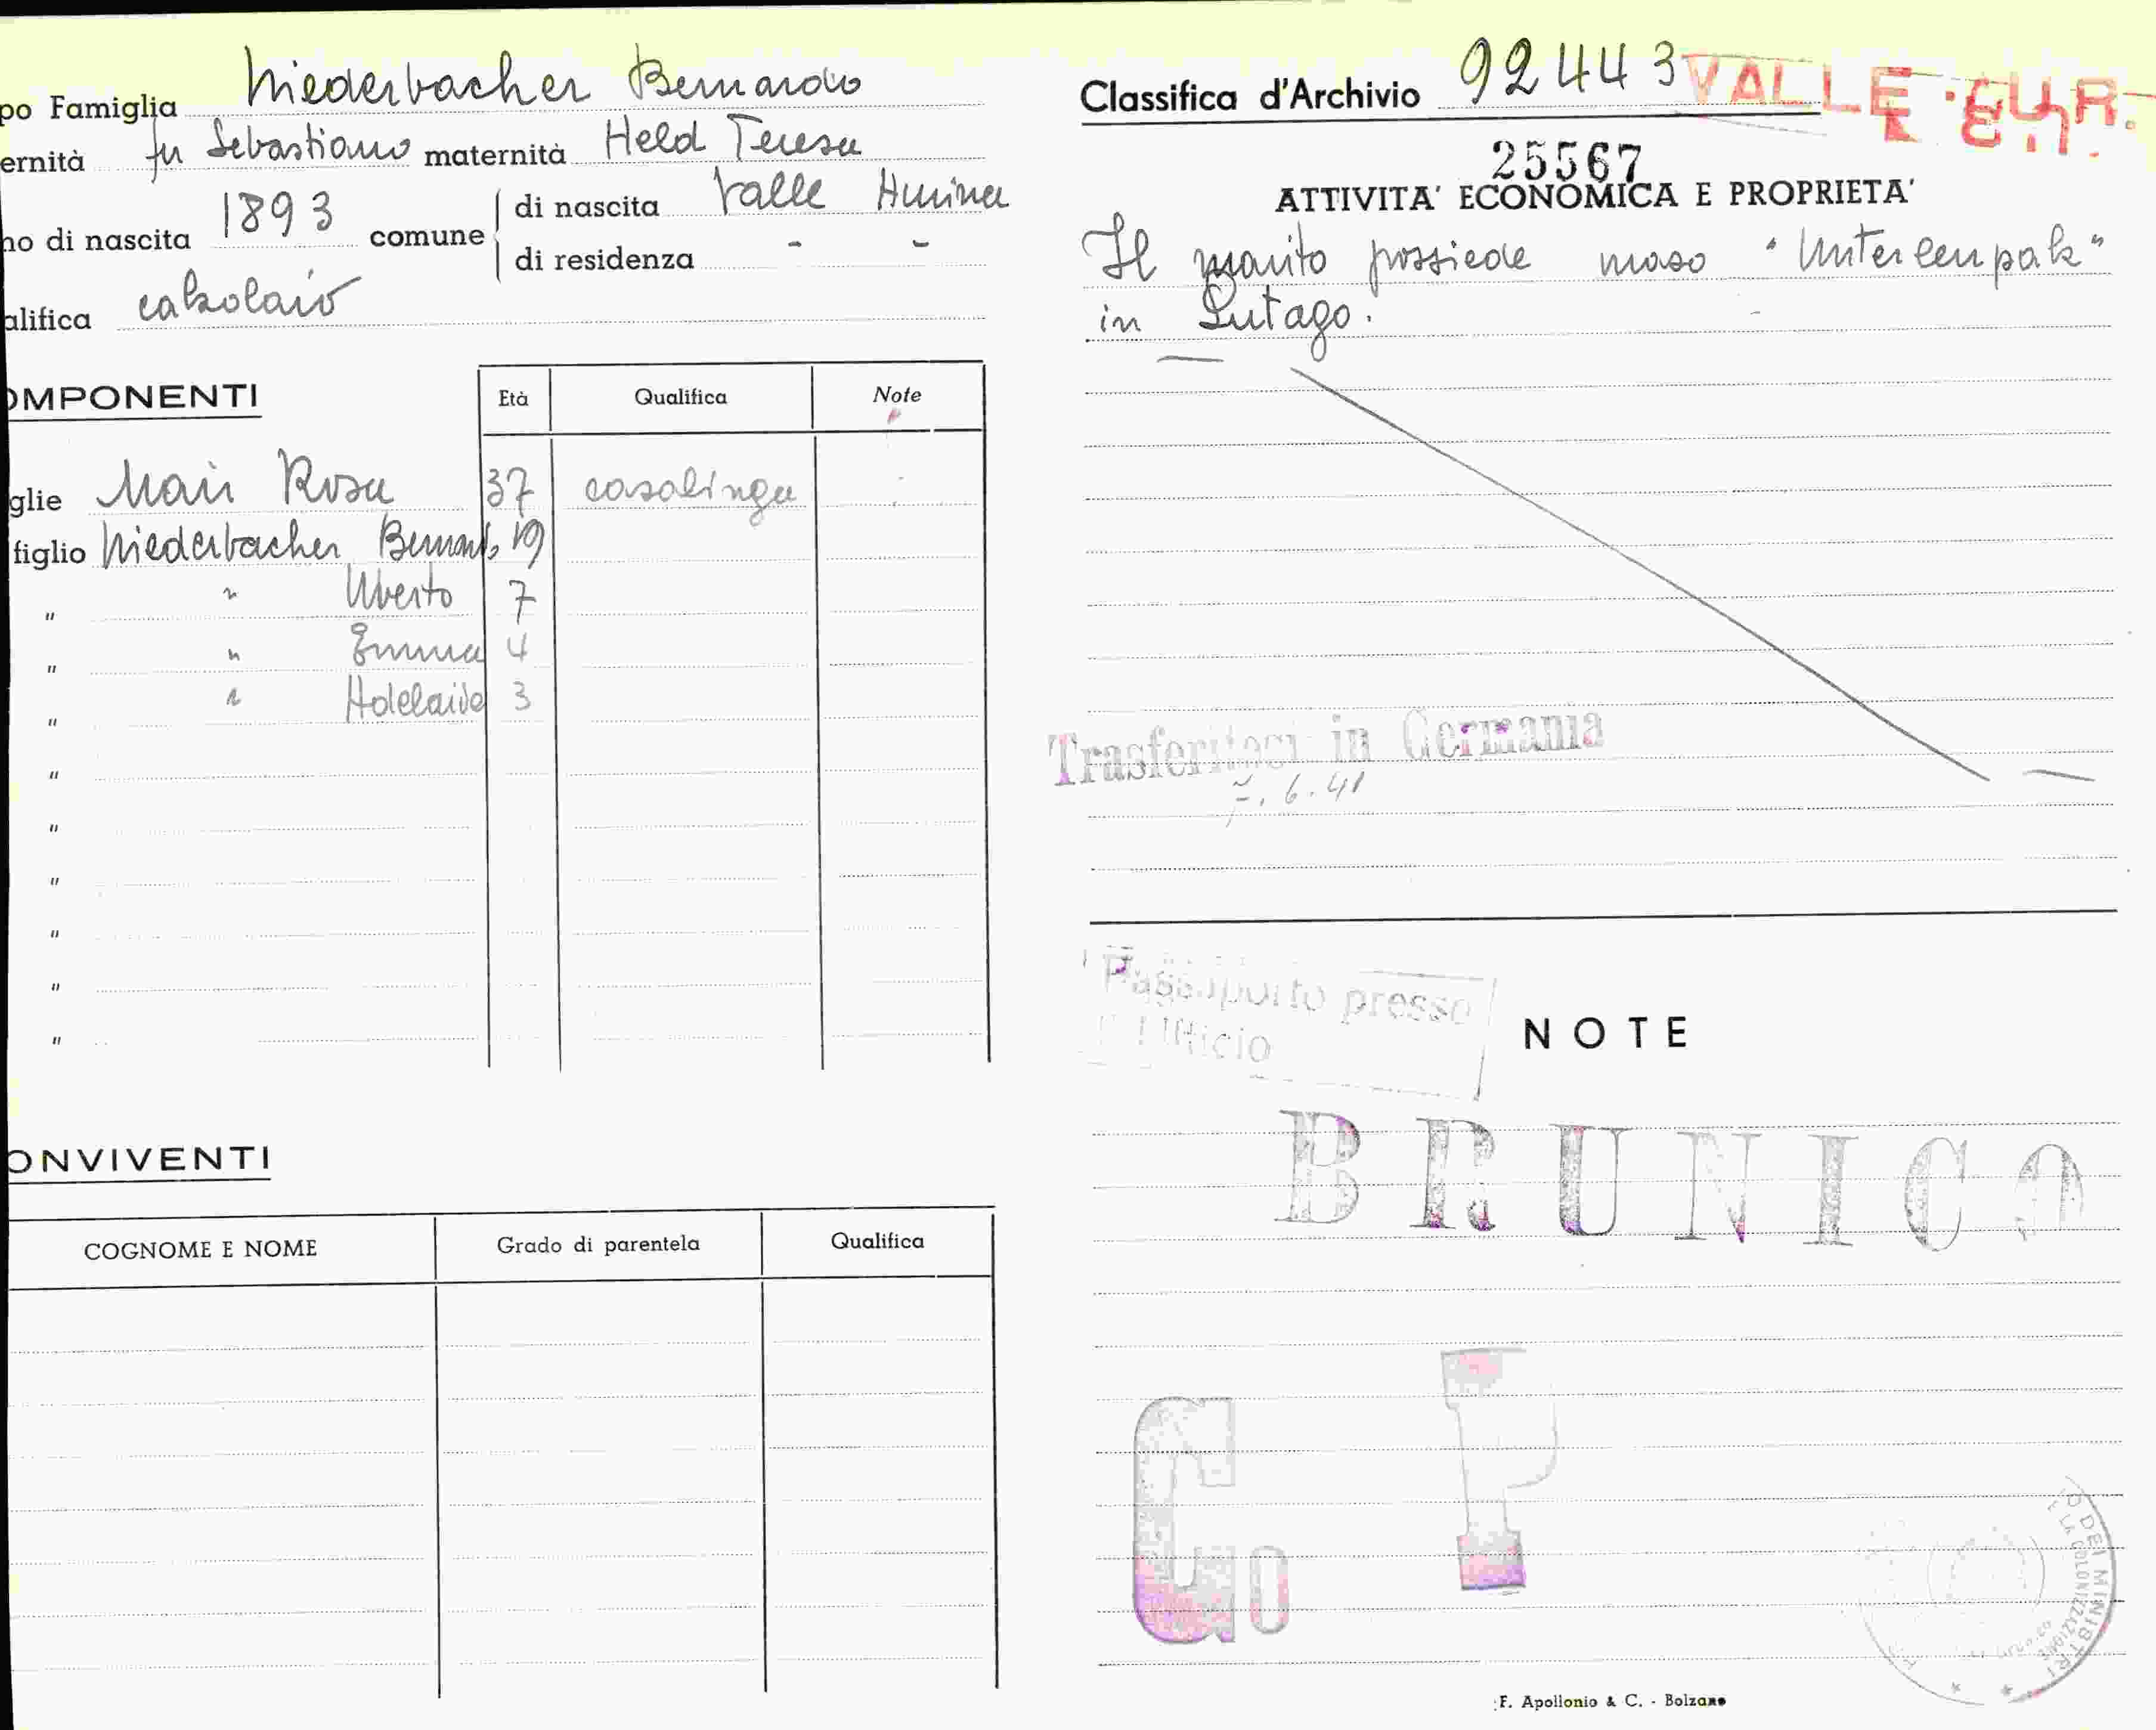 po Famiglia Niederbacher Bernardo
ernità fu Sebastiano maternità Held Teresa
no di nascita 1893 comune di nascita Valle Aurina
di residenza " "
alifica calzolaio
OMPONENTI
Età Qualifica Note
glie Mair Rosa 37 casalinga
figlio Niederbacher Bernardo 19
" " Uberto 7
" " Emma 4
" " Adelaide 3
"
"
"
"
"
"
ONVIVENTI
COGNOME E NOME Grado di parentela Qualifica
Classifica d'Archivio 92443 VALLE AUR.
25567
ATTIVITA' ECONOMICA E PROPRIETA'
Il marito possiede maso "
in Lutago.
Trasferitosi in Germania
6.41
Passaporto presso
l'Ufficio
NOTE
BRUNICO
Go P
DEI MINISTRI
LA COLONIZZAZIONE
F. Apollonio & C. - Bolzano